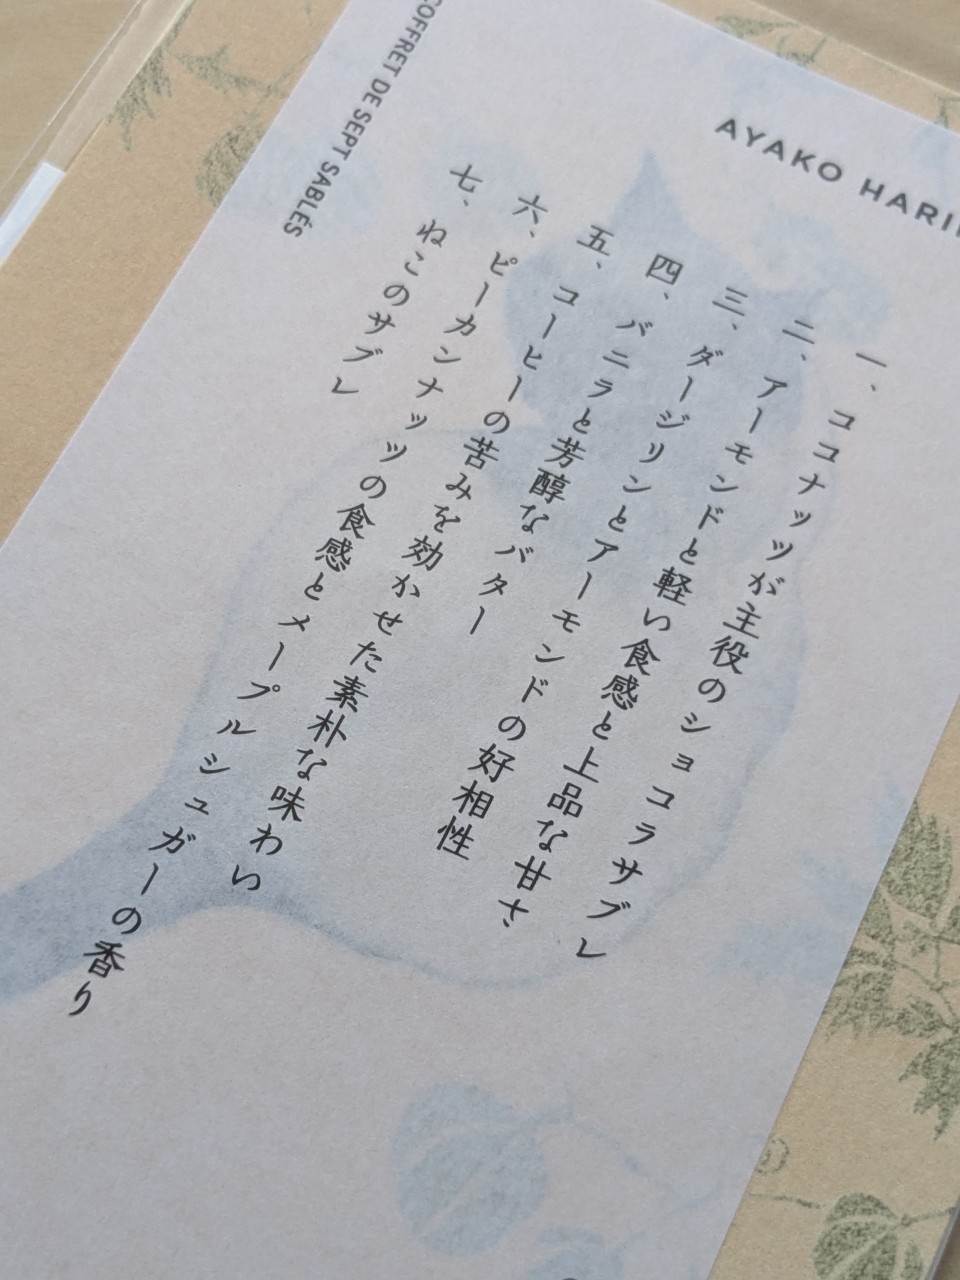 AYAKO
一、ココナッツが主役のショコラサブレ
二、アーモンドと軽い食感と上品な甘さ
三、ダージリンとアーモンドの好相性
四、バニラと芳醇なバター
五、コーヒーの苦みを効かせた素朴な味わい
六、ピーカンナッツの食感とメープルシュガーの香り
七、ねこのサブレ
COFFRET DE SEPT SABLÉS